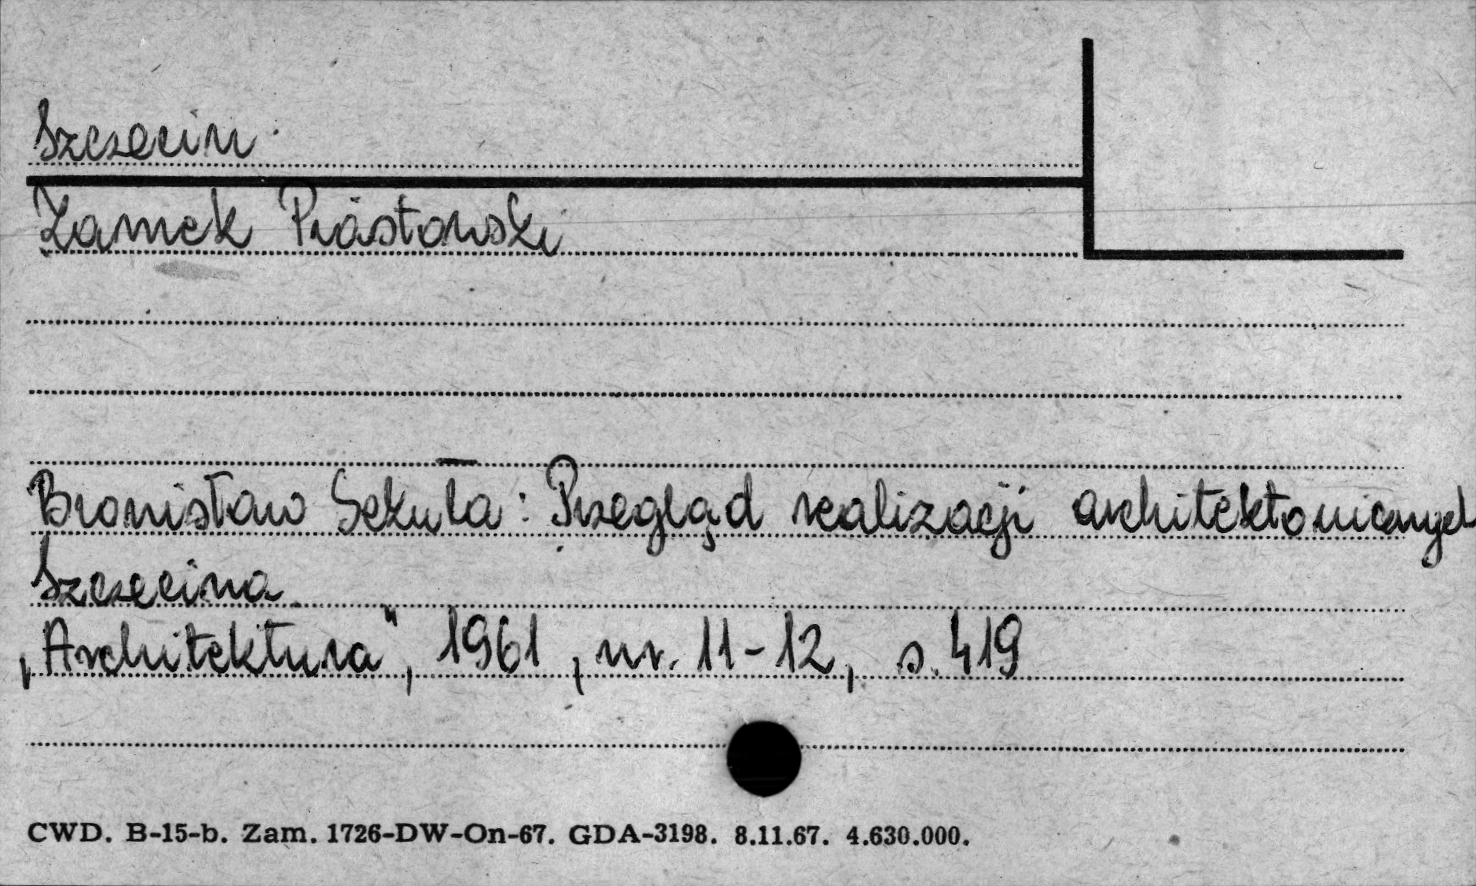 Szczecin
Zamek Piastowski
Bronisław Sekuła: Przegląd realizacji architektonicznych
Szczecina
„Architektura", 1961, nr. 11-12, s. 419
CWD. B-15-b. Zam. 1726-DW-On-67. GDA-3198. 8.11.67. 4.630.000.